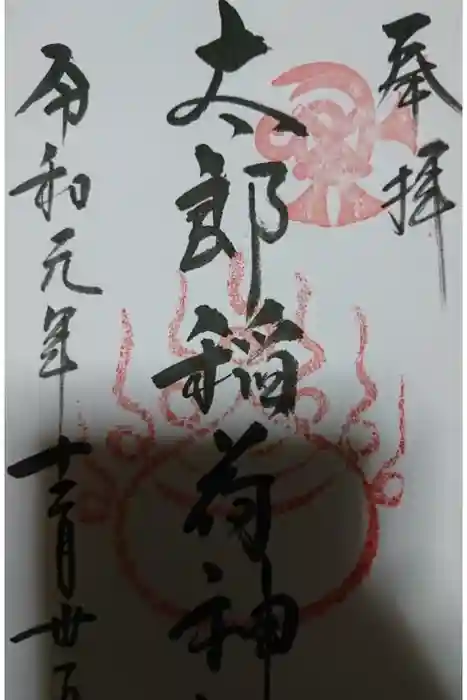 奉拝
太郎稲荷神
令和元年十二月廿五